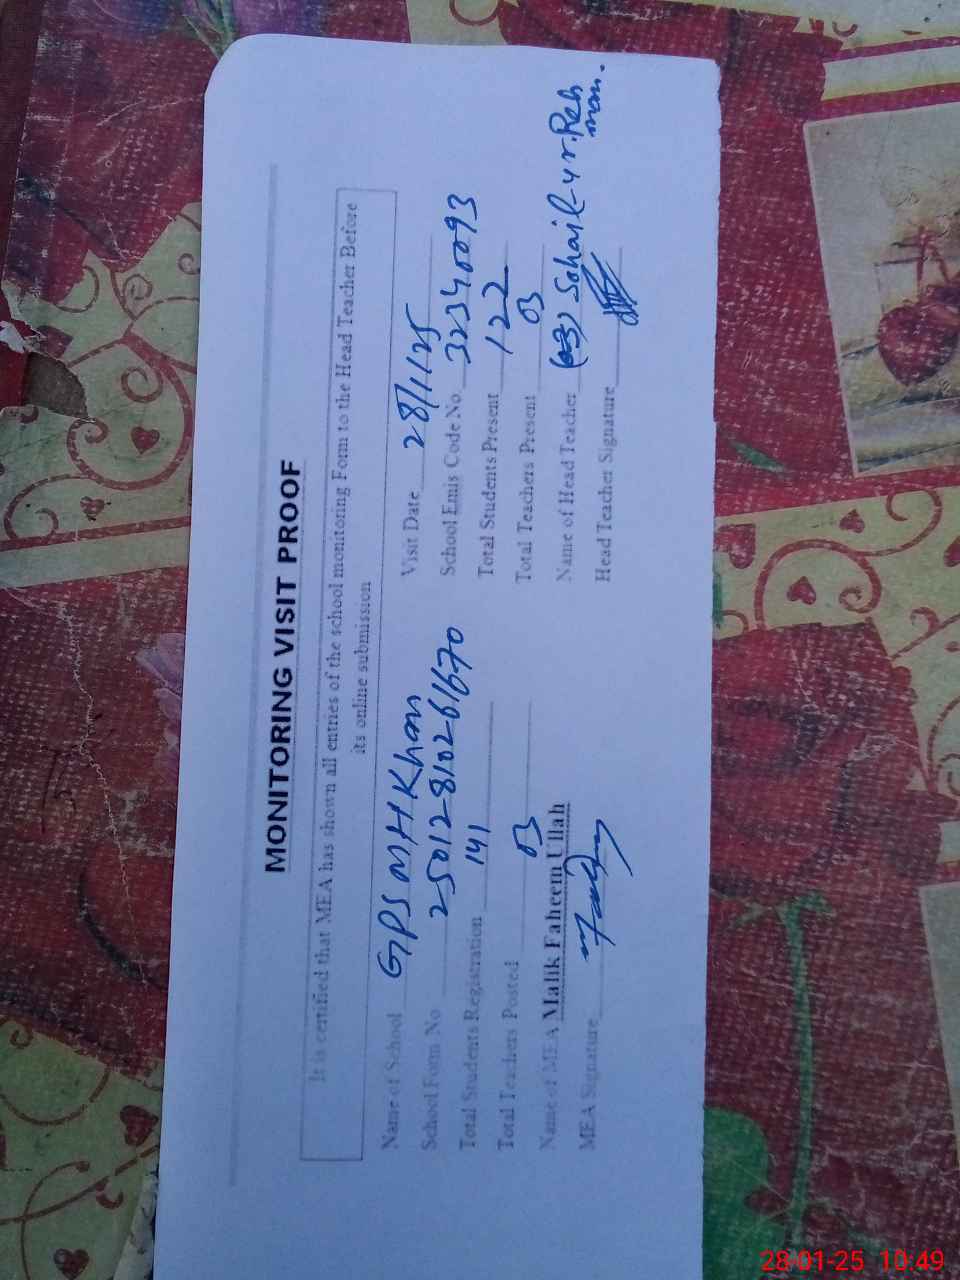 MONITORING VISIT PROOF
It is certified that MEA has shown all entries of the school monitoring Form to the Head Teacher Before
its online submission
Name of School GPS MHKhan Visit Date 28/1/25
School Form No 25012810261670 School Emis Code No. 32340093
Total Students Registration 141 Total Students Present 122
Total Teachers Posted 03 Total Teachers Present 03
Name of MEA Malik Faheem Ullah Name of Head Teacher Sohail-ur-Rehman.
MEA Signature Head Teacher Signature
28-01-25 10:49